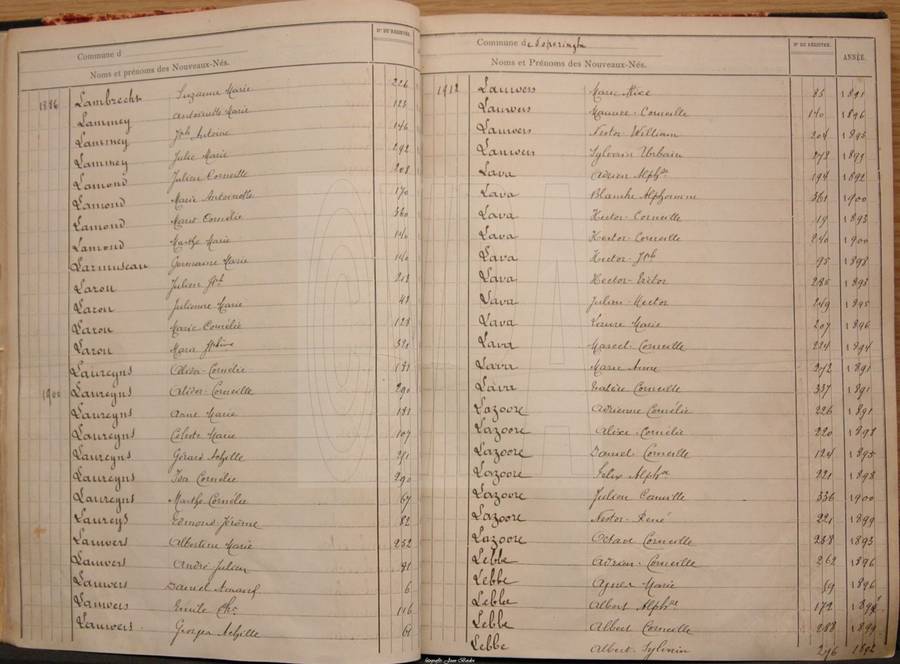 Commune d
Noms et prénoms des Nouveaux-Nés.
N° DU REGISTRE.
1886 Lambrecht Suzanne Marie 226
Lammey Antoinette Marie 123
Lammey Jph Antoine 146
Lammey Julie Marie 292
Lamond Julien Corneille 208
Lamond Marie Antoinette 170
Lamond Marie Cornélie 360
Lamond Marthe Marie 140
Larmuseau Germaine Marie 140
Larou Julien Jph 212
Larou Julienne Marie 41
Larou Marie Cornélie 128
Larou Maria 321
Laureyns Cornélie 131
1900 Laureyns Corneille 290
Laureyns Anne Marie 181
Laureyns Céleste Marie 107
Laureyns Gérard Achille 271
Laureyns Isa Cornélie 290
Laureyns Marthe Cornélie 67
Laureys Edmond Jérôme 82
Lauwers Albertine Marie 252
Lauwers André Julien 91
Lauwers Daniel Amand 6
Lauwers Emile Chs 116
Lauwers Georges Achille 61
Commune de Poperinghe
Noms et Prénoms des Nouveaux-Nés.
N° DU REGISTRE.
ANNÉE.
1912 Lauwers Marie Alice 85 1891
Lauwers Maurice Corneille 140 1896
Lauwers Nestor William 204 1895
Lauwers Sylvain Urbain 272 1893
Lava Adrien Alphse 194 1892
Lava Blanche Alphonsine 361 1900
Lava Hector Corneille 19 1893
Lava Hector Corneille 240 1900
Lava Hector Jph 95 1898
Lava Hector Victor 285 1898
Lava Julien Hector 249 1895
Lava Laure Marie 207 1896
Lava Marcel Corneille 224 1894
Lava Marie Anne 272 1891
Lava Valère Corneille 337 1891
Lazoore Adrienne Cornélie 226 1891
Lazoore Alice Cornélie 220 1898
Lazoore Daniel Corneille 124 1895
Lazoore Félix Alphse 221 1898
Lazoore Julien Camille 336 1900
Lazoore Nestor René 221 1899
Lazoore Octave Corneille 258 1893
Lebbe Adrien Corneille 262 1896
Lebbe Agnes Marie 59 1896
Lebbe Albert Alphse 172
Lebbe Albert Corneille 288 1899
Lebbe Albert Sylvain 276